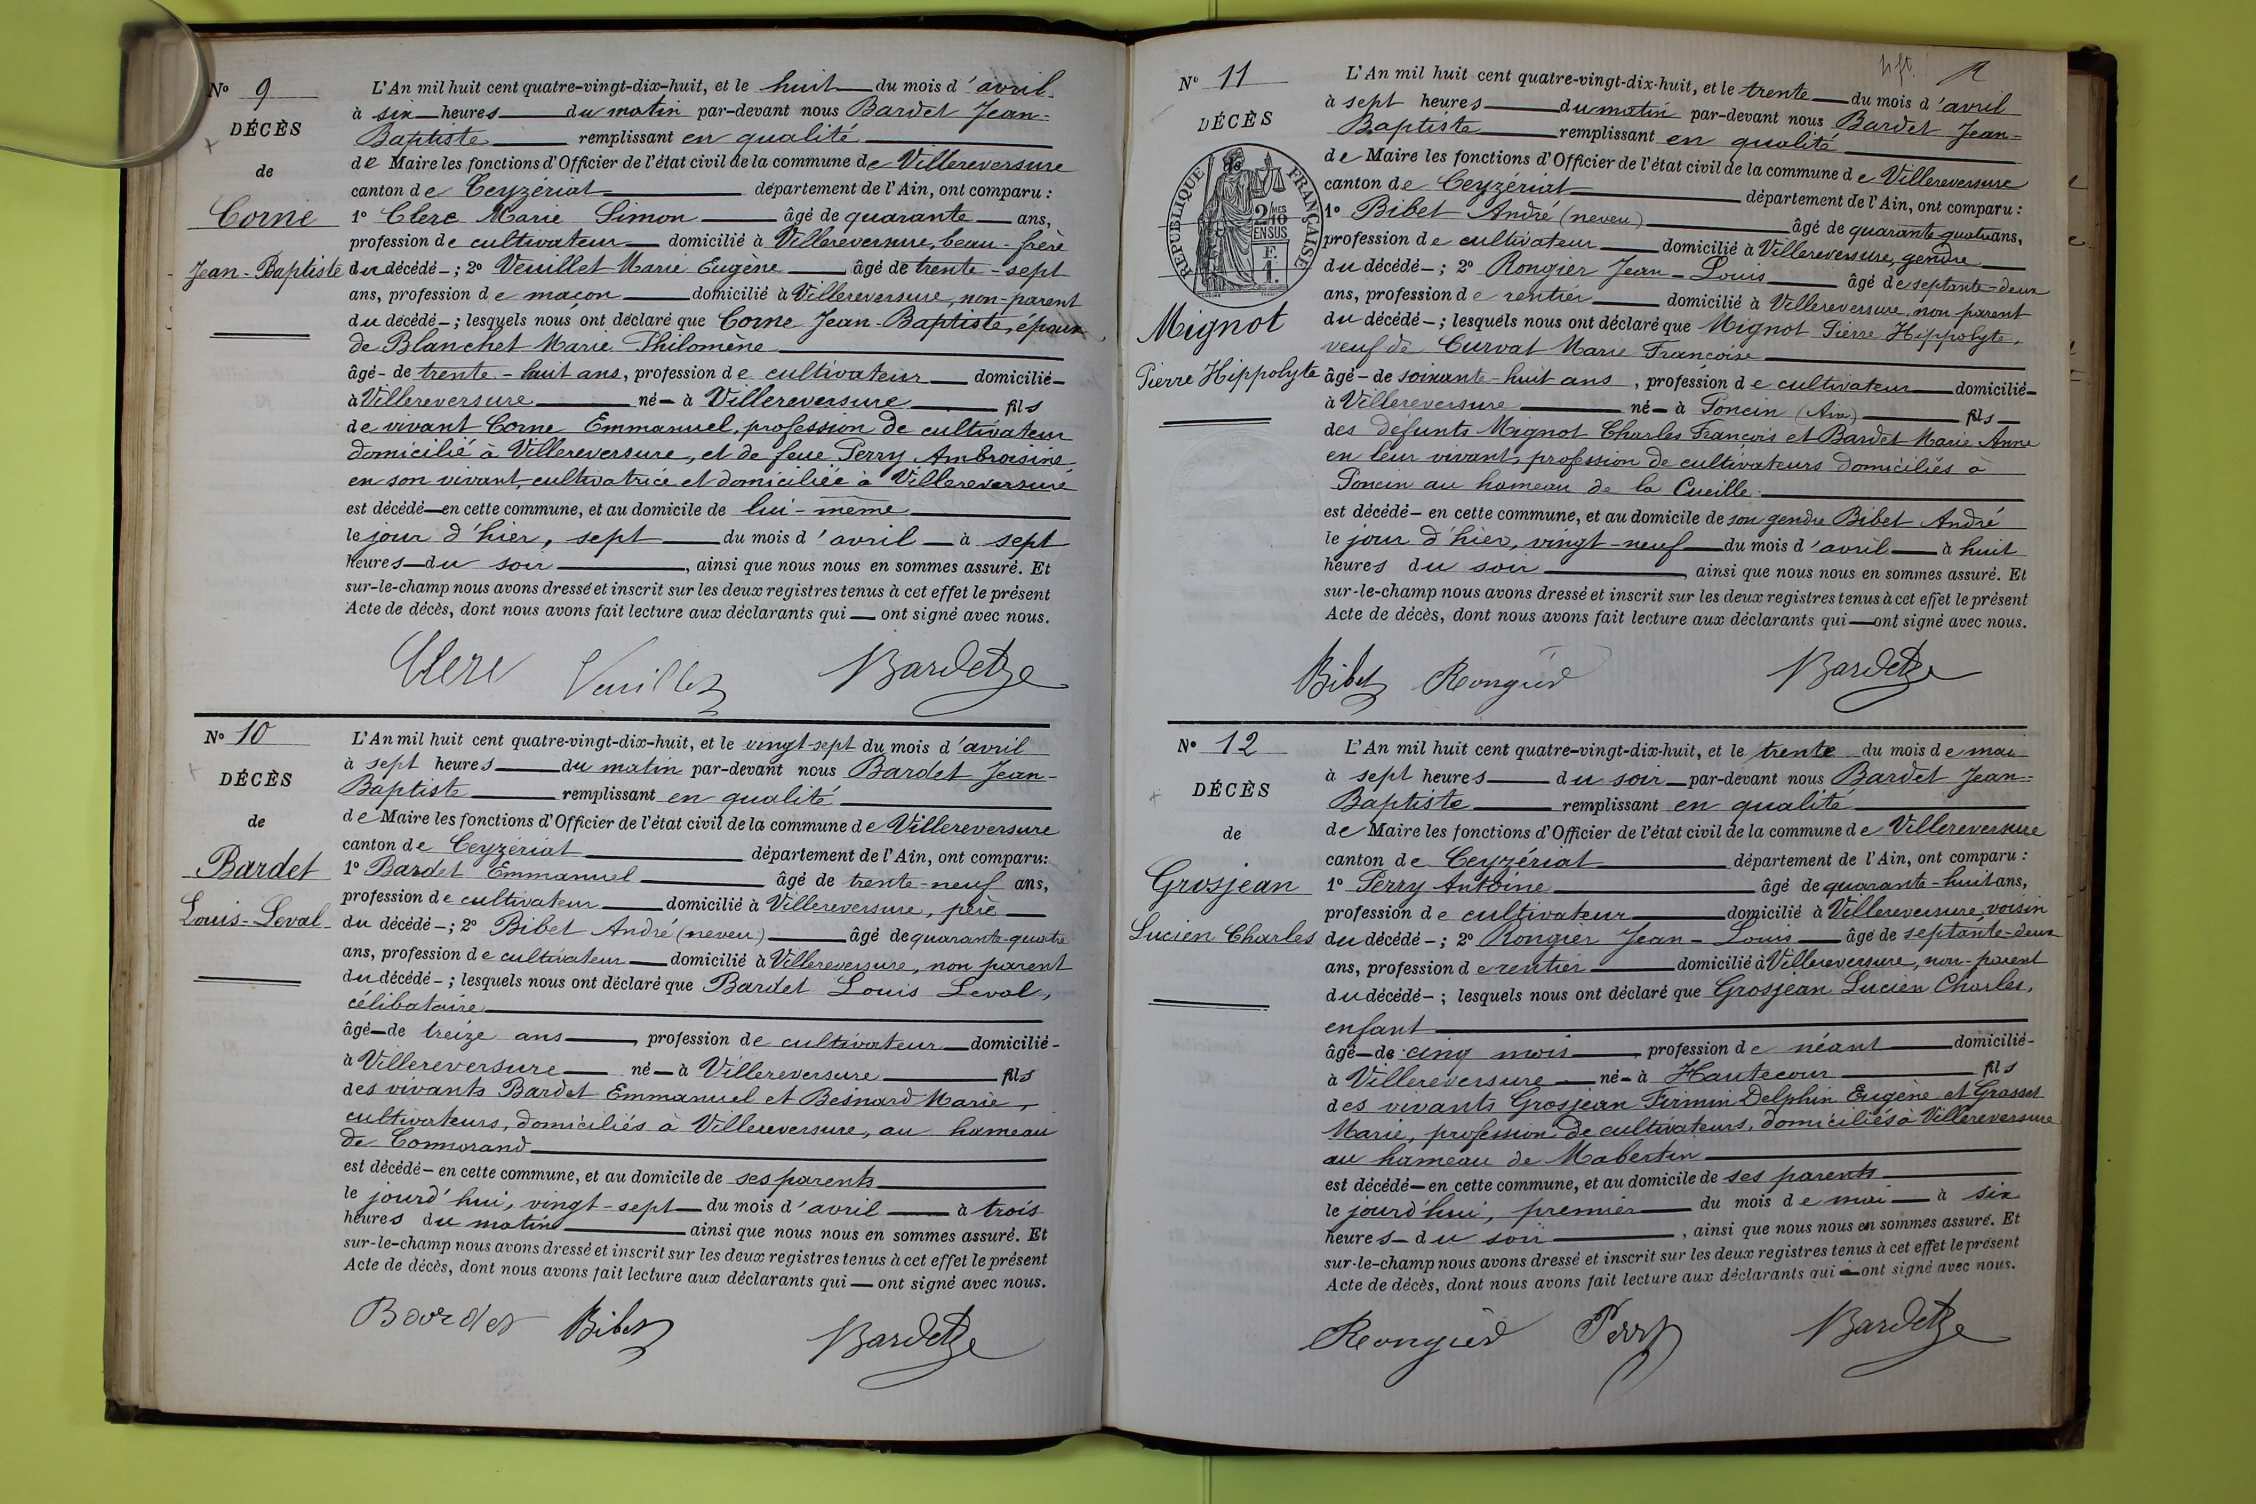 Nº 9
DÉCÈS
de
Corne
Jean-Baptiste
L'An mil huit cent quatre-vingt-dix-huit, et le huit du mois d'avril
à six heures du matin par-devant nous Bardet Jean-
Baptiste remplissant en qualité
de Maire les fonctions d'Officier de l'état civil de la commune de Villereversure
canton de Ceyzériat département de l'Ain, ont comparu :
1º Clerc Marie Simon âgé de quarante ans,
profession de cultivateur domicilié à Villereversure, beau-frère
du décédé ; 2º Veuillet Marie Eugène âgé de trente-sept
ans, profession de maçon domicilié à Villereversure, non-parent
du décédé ; lesquels nous ont déclaré que Corne Jean-Baptiste, époux
de Blanchet Marie Philomène
âgé de trente-huit ans, profession de cultivateur domicilié
à Villereversure né à Villereversure fils
de vivant Corne Emmanuel, profession de cultivateur
domicilié à Villereversure, et de feue Perry Ambroisine
en son vivant, cultivatrice et domiciliée à Villereversure
est décédé en cette commune, et au domicile de lui-même
le jour d'hier, sept du mois d'avril à sept
heures du soir, ainsi que nous nous en sommes assuré. Et
sur-le-champ nous avons dressé et inscrit sur les deux registres tenus à cet effet le présent
Acte de décès, dont nous avons fait lecture aux déclarants qui ont signé avec nous.
Clerc Veuillet Bardet
Nº 10
DÉCÈS
de
Bardet
Louis-Leval
L'An mil huit cent quatre-vingt-dix-huit, et le vingt-sept du mois d'avril
à sept heures du matin par-devant nous Bardet Jean-
Baptiste remplissant en qualité
de Maire les fonctions d'Officier de l'état civil de la commune de Villereversure
canton de Ceyzériat département de l'Ain, ont comparu:
1º Bardet Emmanuel âgé de trente-neuf ans,
profession de cultivateur domicilié à Villereversure, père
du décédé ; 2º Bibet André (neveu) âgé de quarante-quatre
ans, profession de cultivateur domicilié à Villereversure, non parent
du décédé ; lesquels nous ont déclaré que Bardet Louis Leval,
célibataire
âgé de treize ans, profession de cultivateur domicilié
à Villereversure né à Villereversure fils
des vivants Bardet Emmanuel et Besnard Marie,
cultivateurs, domiciliés à Villereversure, au hameau
de Conmorand
est décédé en cette commune, et au domicile de ses parents
le jourd'hui, vingt-sept du mois d'avril à trois
heures du matin ainsi que nous nous en sommes assuré. Et
sur-le-champ nous avons dressé et inscrit sur les deux registres tenus à cet effet le présent
Acte de décès, dont nous avons fait lecture aux déclarants qui ont signé avec nous.
Bardet Bibet Bardet
Nº 11
DÉCÈS
RÉPUBLIQUE FRANÇAISE
2/10 MES
EN SUS
F.
1.
Mignot
Pierre Hippolyte
L'An mil huit cent quatre-vingt-dix-huit, et le trente du mois d'avril
à sept heures du matin par-devant nous Bardet Jean-
Baptiste remplissant en qualité
de Maire les fonctions d'Officier de l'état civil de la commune de Villereversure
canton de Ceyzériat département de l'Ain, ont comparu :
1º Bibet André (neveu) âgé de quarante quatre ans,
profession de cultivateur domicilié à Villereversure, gendre
du décédé ; 2º Rongier Jean-Louis âgé de septante-deux
ans, profession de rentier domicilié à Villereversure, non parent
du décédé ; lesquels nous ont déclaré que Mignot Pierre Hippolyte,
veuf de Curvat Marie Françoise
âgé de soixante-huit ans, profession de cultivateur domicilié
à Villereversure né à Poncin (Ain) fils
des défunts Mignot Charles François et Bardet Marie Anne
en leur vivant, profession de cultivateurs domiciliés à
Poncin au hameau de la Cueille.
est décédé en cette commune, et au domicile de son gendre Bibet André
le jour d'hier, vingt-neuf du mois d'avril à huit
heures du soir, ainsi que nous nous en sommes assuré. Et
sur-le-champ nous avons dressé et inscrit sur les deux registres tenus à cet effet le présent
Acte de décès, dont nous avons fait lecture aux déclarants qui ont signé avec nous.
Bibet Rongier Bardet
Nº 12
DÉCÈS
de
Grosjean
Lucien Charles
L'An mil huit cent quatre-vingt-dix-huit, et le trente du mois de mai
à sept heures du soir par-devant nous Bardet Jean-
Baptiste remplissant en qualité
de Maire les fonctions d'Officier de l'état civil de la commune de Villereversure
canton de Ceyzériat département de l'Ain, ont comparu :
1º Perry Antoine âgé de quarante-huit ans,
profession de cultivateur domicilié à Villereversure, voisin
du décédé ; 2º Rongier Jean-Louis âgé de septante-deux
ans, profession de rentier domicilié à Villereversure, non-parent
du décédé ; lesquels nous ont déclaré que Grosjean Lucien Charles,
enfant
âgé de cinq mois, profession de néant domicilié
à Villereversure né à Hautecour fils
des vivants Grosjean Firmin Delphin Eugène et Grosset
Marie, profession de cultivateurs, domiciliés à Villereversure
au hameau de Mabertin
est décédé en cette commune, et au domicile de ses parents
le jourd'hui, premier du mois de mai à six
heures du soir, ainsi que nous nous en sommes assuré. Et
sur-le-champ nous avons dressé et inscrit sur les deux registres tenus à cet effet le présent
Acte de décès, dont nous avons fait lecture aux déclarants qui ont signé avec nous.
Rongier Perry Bardet